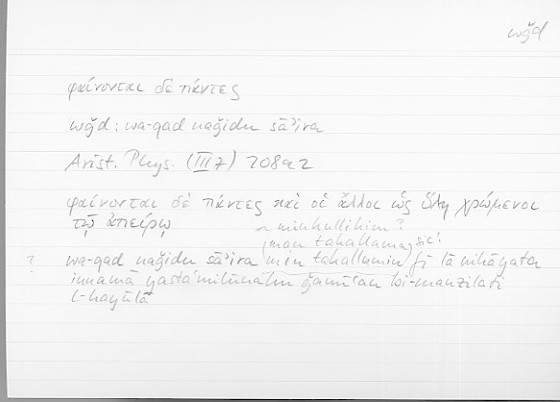 wǧd
φαίνονται δὲ πάντες
wǧd: wa-qad naǧidu sāʾira
Arist. Phys. (III 7) 208a2
φαίνονται δὲ πάντες καὶ οἱ ἄλλοι ὡς ὕλῃ χρώμενοι
τῷ ἀπείρῳ
~ minkullihim?
; man takallama, sic!
? wa-qad naǧidu sāʾira min takallumin fī lā nihāyata
innamā yastaʿmilūnahu ǧamīʿan bi-manzilati
l-hayūlā